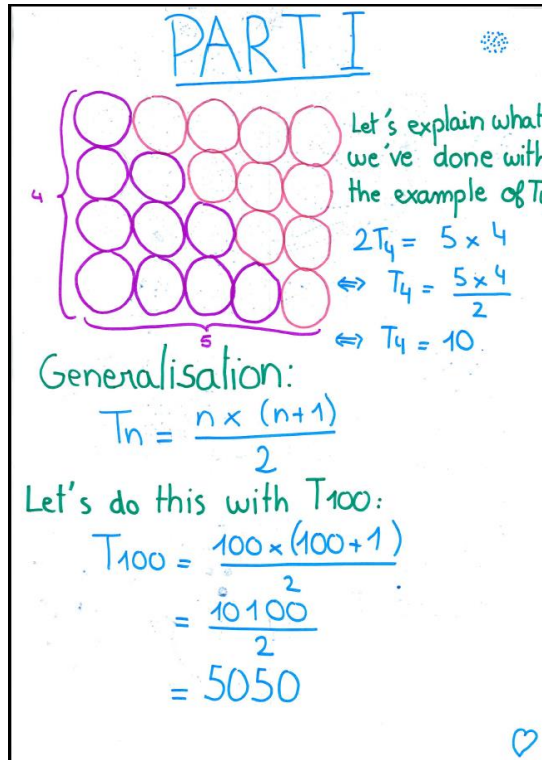 PART I
4
5
Let's explain what
we've done with
the example of T
2T4 = 5 x 4
⇔ T4 = 5 x 4 / 2
⇔ T4 = 10
Generalisation:
Tn = n x (n+1) / 2
Let's do this with T100:
T100 = 100 x (100+1) / 2
= 10100 / 2
= 5050